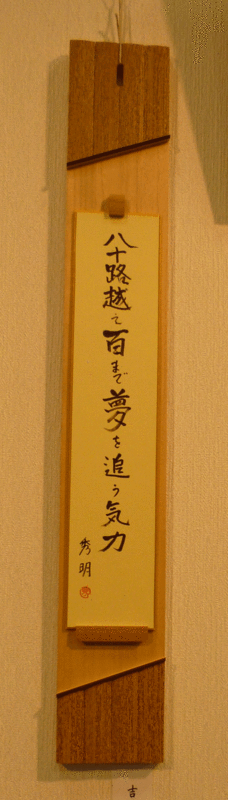 八十路越え百まで夢を追う気力
秀明
吉